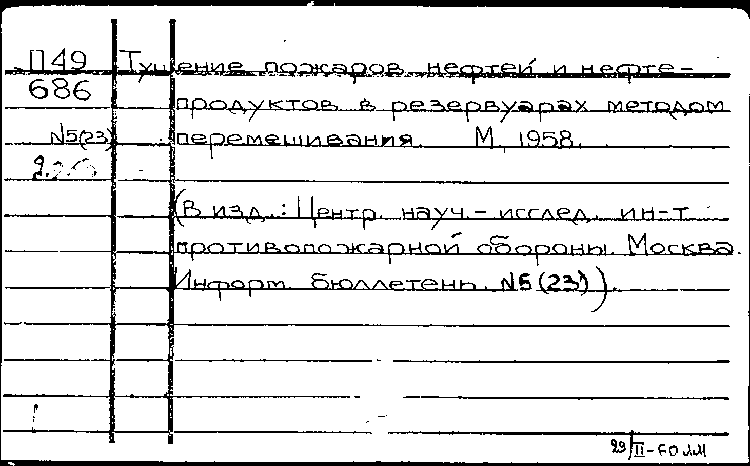 П49 Тушение пожаров нефтей и нефте-
686 продуктов в резервуарах методом
N5(23) перемешивания. М, 1958.
(В изд.: Центр. науч.-исслед. ин-т
противопожарной обороны. Москва.
Информ. бюллетень. N5(23)).
29/II-60